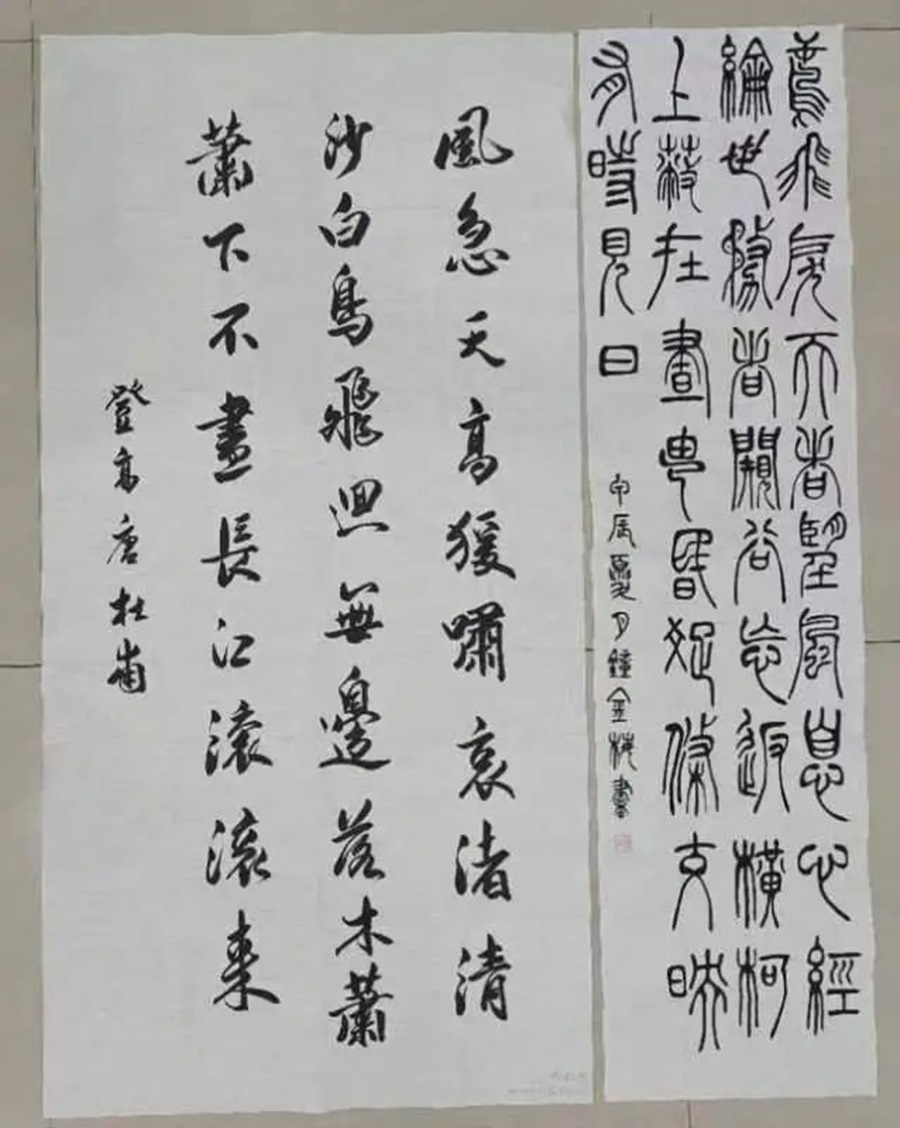 鳶飛戾天者望峰息心經
綸世務者闚谷忘返橫柯
上蔽在晝猶昏疏條交映
有時見日
甲辰夏月鐘金梅書
風急天高猿嘯哀渚清
沙白鳥飛迴無邊落木蕭
蕭下不盡長江滾滾來
登高唐杜甫